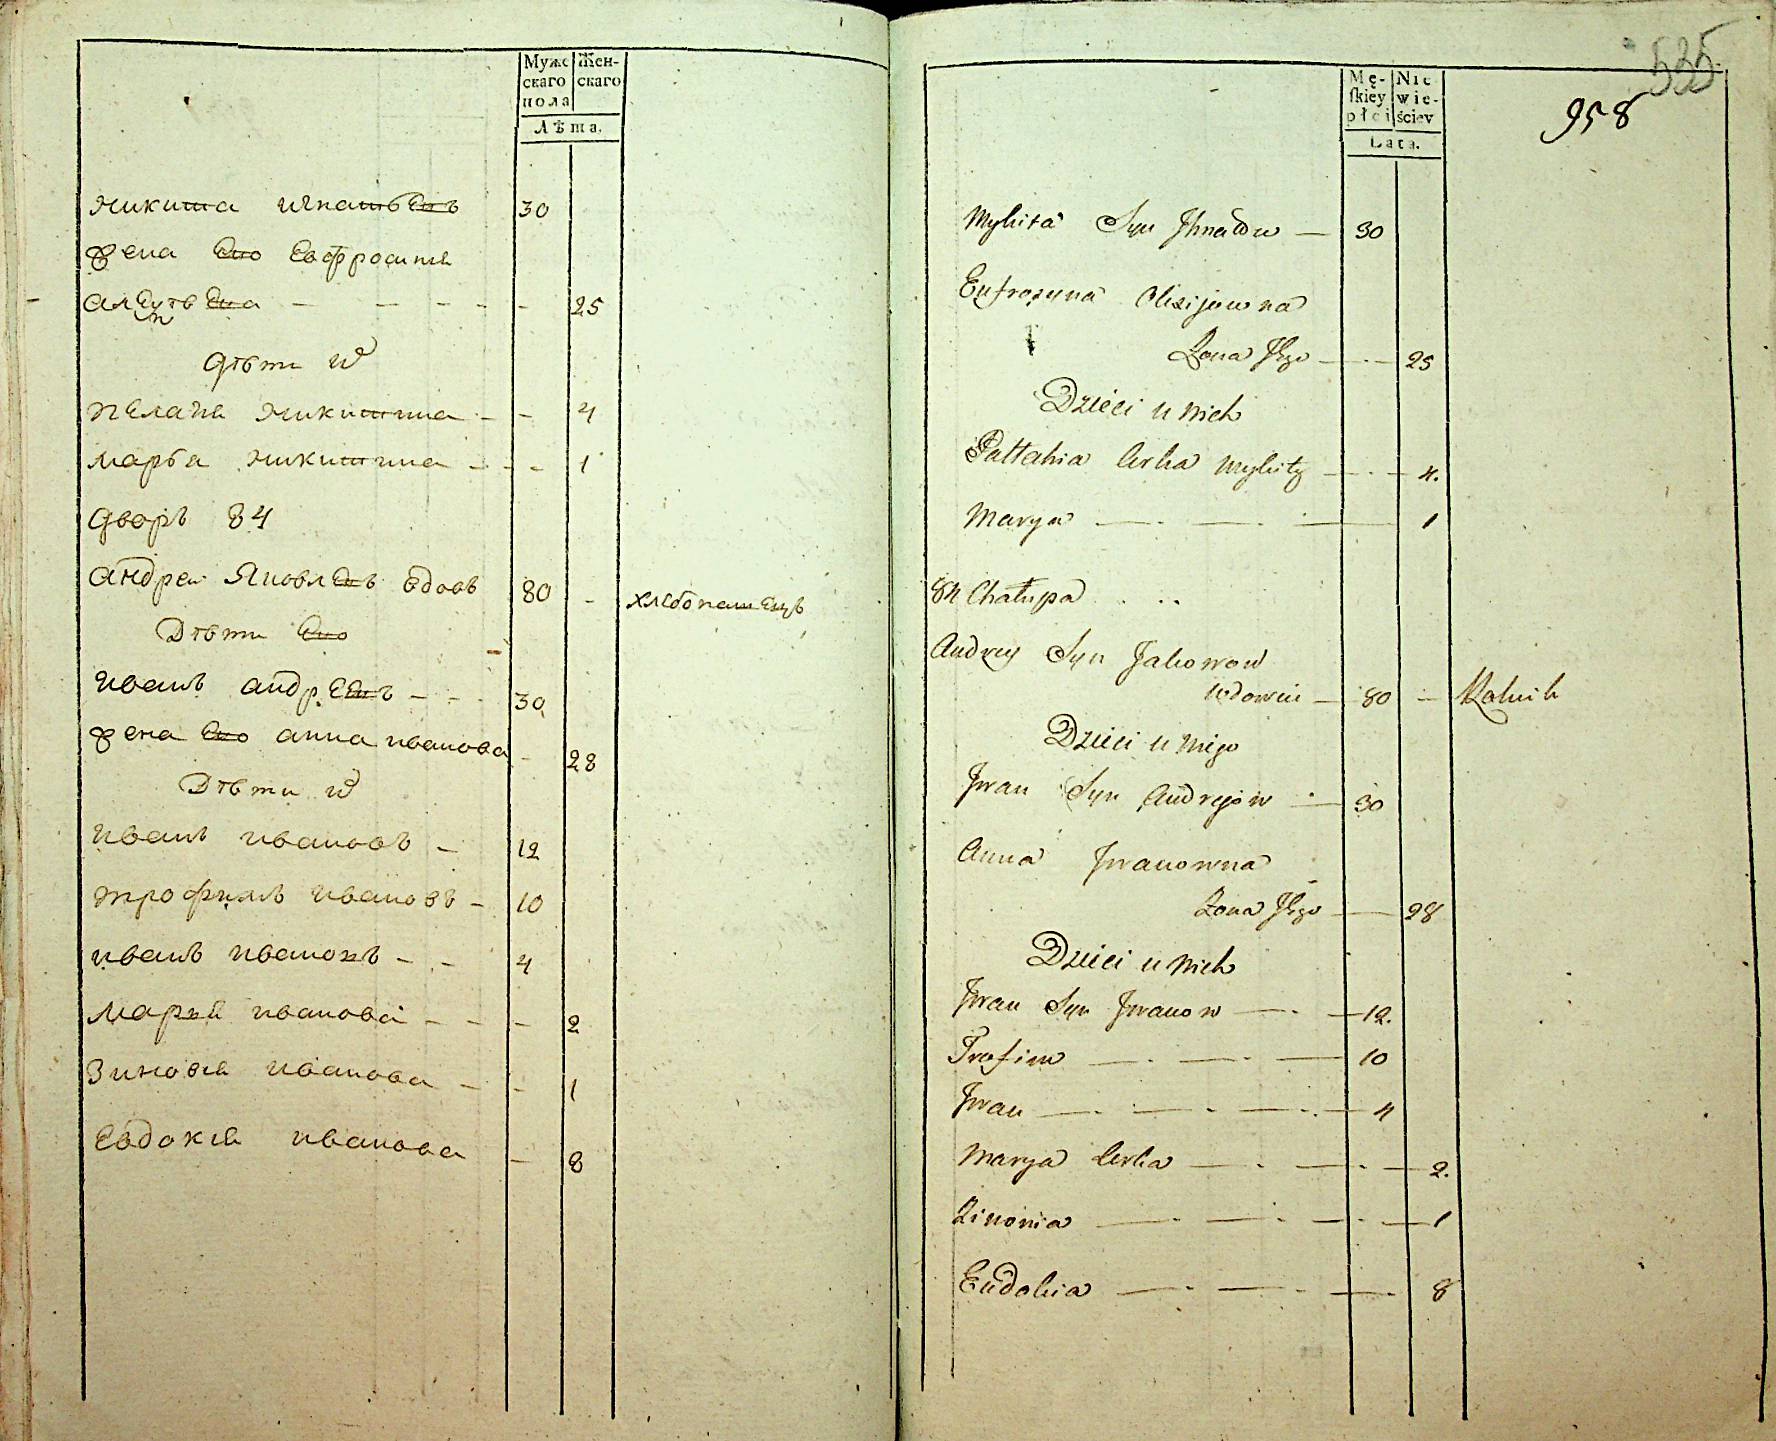 Мужс Жен-
скаго скаго
пола
Лѣта.
Никита игнатьевъ 30
жена Его Евфросинія
алексѣевна - - - - - 25
дѣти их
пелагія Никитина - - 4
марѳа Никитина - - - 1
дворъ 84
андрей Яковлевъ вдовъ 80 - хлебопашецъ
Дѣти Его
иванъ андреевъ - - - 30
жена Его анна иванова - 28
Дѣти их
иванъ ивановъ - 12
трофимъ ивановъ - 10
иванъ ивановъ - - 4
Марія иванова - - - 2
Зиновія иванова - - 1
Евдокія иванова - 8
535
958
Mę- Nie
skiey wie-
płci ściey
Lata.
Mykita Syn Ihnatow — 30
Eufrozyna Olexijowna
Zona Jego — · — 25
Dzieci u nich
Pallahia Corka Mykity — · — 4.
Marya — · — · — 1
84 Chałupa . . .
Andrey Syn Jakowow
wdowiec — 80 — Rolnik
Dzieci u niego
Jwan Syn Andrejow — 30
Anna Jwanowna
Zona Jego — 28
Dzieci u nich
Jwan Syn Jwanow — · — 12.
Trofim — · — · — 10
Jwan — · — · — · — 4
Marya Corka — · — · — 2.
Zinowia — · — · — · — 1
Eudokia — · — · — · 8